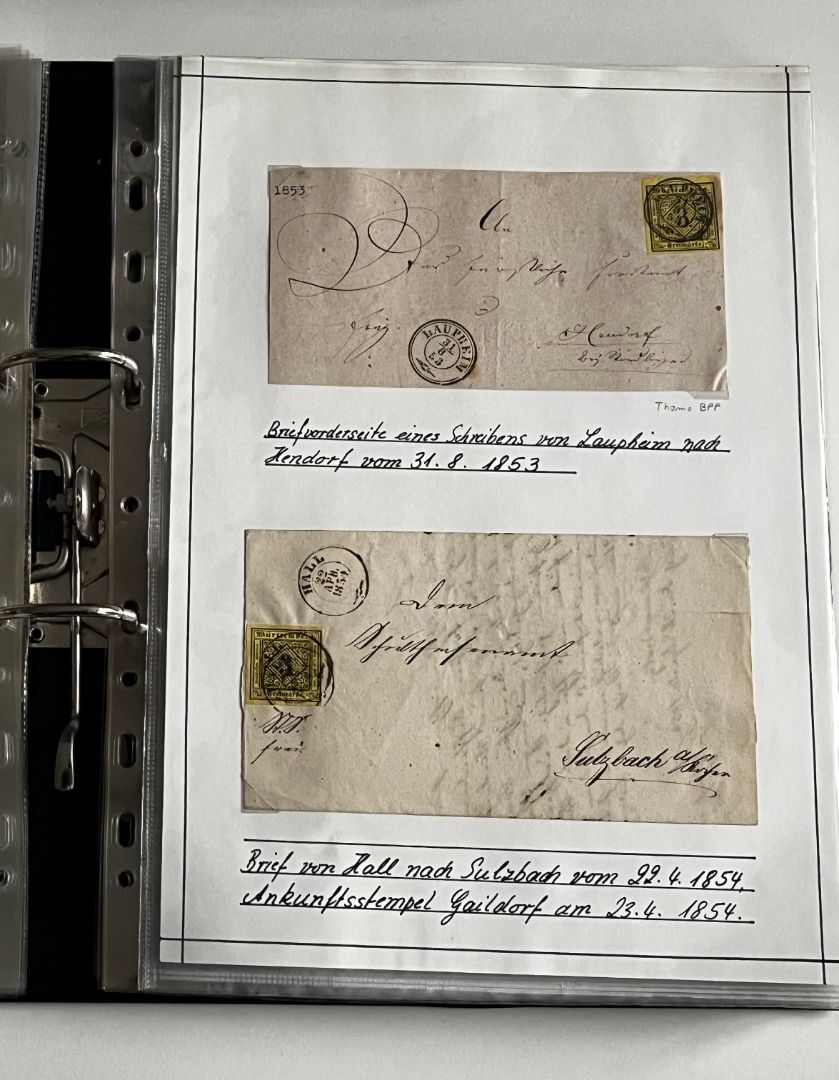 1853
An
Württemberg
3
Freimarke
LAUPHEIM
31
8
53
Thoma BPP
Briefvorderseite eines Schreibens von Laupheim nach
Hendorf vom 31. 8. 1853
HALL
22
APR.
1854
Dem
Schultheisenamt
Württemberg
Freimarke
frei
Sulzbach a/
Brief von Hall nach Sulzbach vom 22. 4. 1854,
Ankunftsstempel Gaildorf am 23. 4. 1854.